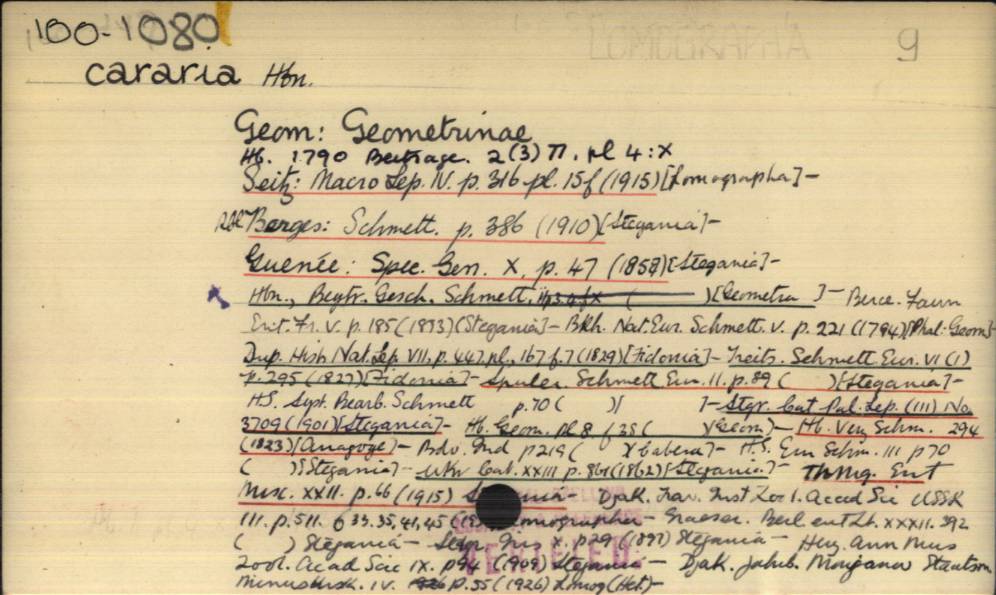 100-1080
LOMOGRAPHA 9
cararia Hbn.
Geom: Geometrinae
Hb. 1790 Beitrage. 2(3) 77, pl 4: X
Seitz: Macro Lep. IV. p. 316 pl. 15f (1915) [Lomographa] -
Berges: Schmett. p. 386 (1910) [Stegania] -
Guenée: Spec. Gen. X, p. 47 (1858) [Stegania] -
Hbn., Beytr. Gesch. Schmett. ( ) [Geometra ] - Berce. Faun
Ent. Fr. V. p. 185 (1873) (Stegania] - Bkh. Nat. Eur. Schmett. V. p. 221 (1794) [Phal: Geom]
Dup. Hist Nat. Lep. VII, p. 447, pl, 167 f. 7 (1829) [Fidonia] - Treits. Schmett Eur. VI (1)
p. 295 (1827) [Fidonia] - Spuler. Schmett Eur. II. p. 89 ( ) [Stegania] -
H.S. Syst. Bearb. Schmett p. 70 ( ) [ ] - Stgr. Cat Pal. Lep. (III) No
3709 (1901) [Stegania] - Hb. Geom. pl 8. f 38 ( ) (Geom) - Hb. Verz Schm. 294
(1823) [Anagoge] - Bdv. Ind p 219 ( ) (Cabera] - H.S. Eur Schm. III p 70
( ) [Stegania] - Wkr Cat. XXIII p. (1862) [Stegania.] - Ent
Misc. XXII. p. 66 (1915) - Djak. Trav. Inst Zool. Acad Sci USSR
III. p. 511. 33. 35, 41, 45 Lomographa - Graeser. Berl ent Zt. XXXII. 392
( ) Stegania - Iris X. p 29 (1897) Stegania - Ann Mus
Zool. Acad Sci IX. p 94 (1909) Stegania - Djak. Jahrb. Staatsm
Minussinsk. IV. p. 55 (1926) Lomog (Het.) -